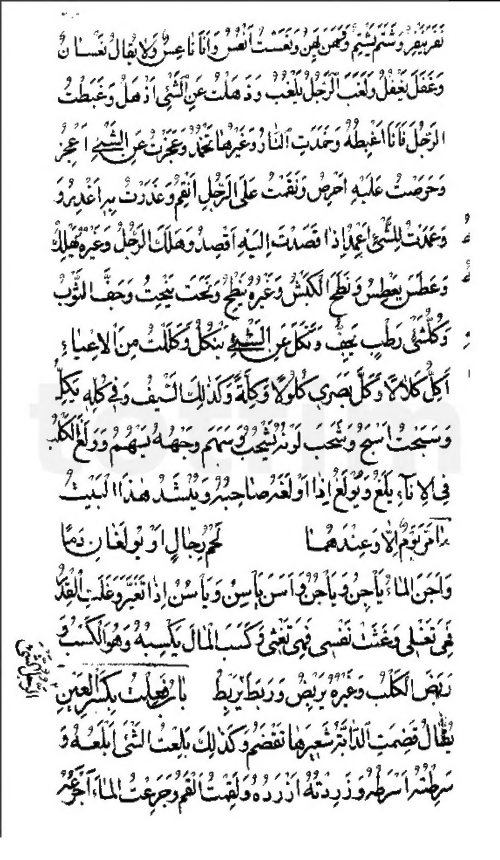 نَفَرَ يَنْفِرُ وَشَتَمَ يَشْتِمُ وَنَعَسْتُ أَنْعُسُ وَأَنَا نَاعِسٌ وَلَا يُقَالُ نَعْسَانُ
وَغَفَلَ يَغْفُلُ وَلَغَبَ الرَّجُلُ يَلْغُبُ وَذَهَلْتُ عَنِ الشَّيْءِ أَذْهَلُ وَغَبَطْتُ
الرَّجُلَ فَأَنَا أَغْبِطُهُ وَخَمَدَتِ النَّارُ وَغَيْرُهَا تَخْمُدُ وَعَجَزْتُ عَنِ الشَّيْءِ أَعْجِزُ
وَحَرَصْتُ عَلَيْهِ أَحْرِصُ وَنَقَمْتُ عَلَى الرَّجُلِ أَنْقِمُ وَغَدَرْتُ بِهِ أَغْدِرُ وَ
وَعَمَدْتُ لِلشَّيْءِ أَعْمِدُ إِذَا قَصَدْتَ إِلَيْهِ أَقْصِدُ وَهَلَكَ الرَّجُلُ وَغَيْرُهُ يَهْلِكُ
وَعَطَسَ يَعْطِسُ وَنَطَحَ الْكَبْشُ وَغَيْرُهُ يَنْطِحُ وَنَحَتَ يَنْحِتُ وَجَفَّ الثَّوْبُ
وَكُلُّ شَيْءٍ رَطْبٍ يَجِفُّ وَنَكَلَ عَنِ الشَّيْءِ يَنْكُلُ وَكَلَلْتُ مِنَ الْإِعْيَاءِ
أَكِلُّ كَلَالًا وَكَلَّ بَصَرِي كُلُولًا وَكِلَّةً وَكَذَلِكَ السَّيْفُ وَفِي كُلِّهِ يَكِلُّ
وَسَبَحْتُ أَسْبَحُ وَشَحَبَ لَوْنُهُ يَشْحُبُ وَسَهَمَ وَجْهُهُ يَسْهُمُ وَوَلَغَ الْكَلْبُ
فِي الْإِنَاءِ يَلَغُ وَيُولَغُ إِذَا أَوْلَغَهُ صَاحِبُهُ وَيُنْشَدُ هَذَا الْبَيْتُ
مَا مَرَّ يَوْمٌ إِلَّا وَعِنْدَهُمَا لَحْمُ رِجَالٍ أَوْ يُولَغَانِ دَمَا
وَأَجَنَ الْمَاءُ يَأْجِنُ وَيَأْجُنُ وَأَسَنَ يَأْسِنُ وَيَأْسُنُ إِذَا تَغَيَّرَ وَغَلَتِ الْقِدْرُ
فَهِيَ تَغْلِي وَغَثَتْ نَفْسِي فَهِيَ تَغْثِي وَكَسَبَ الْمَالَ يَكْسِبُهُ وَهُوَ الْكَسْبُ وَ
رَبَضَ الْكَلْبُ وَغَيْرُهُ يَرْبِضُ وَرَبَطَ يَرْبِطُ بَابُ فَعِلْتُ بِكَسْرِ الْعَيْنِ
يُقَالُ قَضِمَتِ الدَّابَّةُ شَعِيرَهَا تَقْضَمُ وَكَذَلِكَ بَلِعْتُ الشَّيْءَ أَبْلَعُهُ وَ
سَرِطْتُهُ أَسْرَطُهُ وَزَرِدْتُهُ أَزْرَدُهُ وَلَقِمْتُ أَلْقَمُ وَجَرِعْتُ الْمَاءَ أَجْرَعُهُ